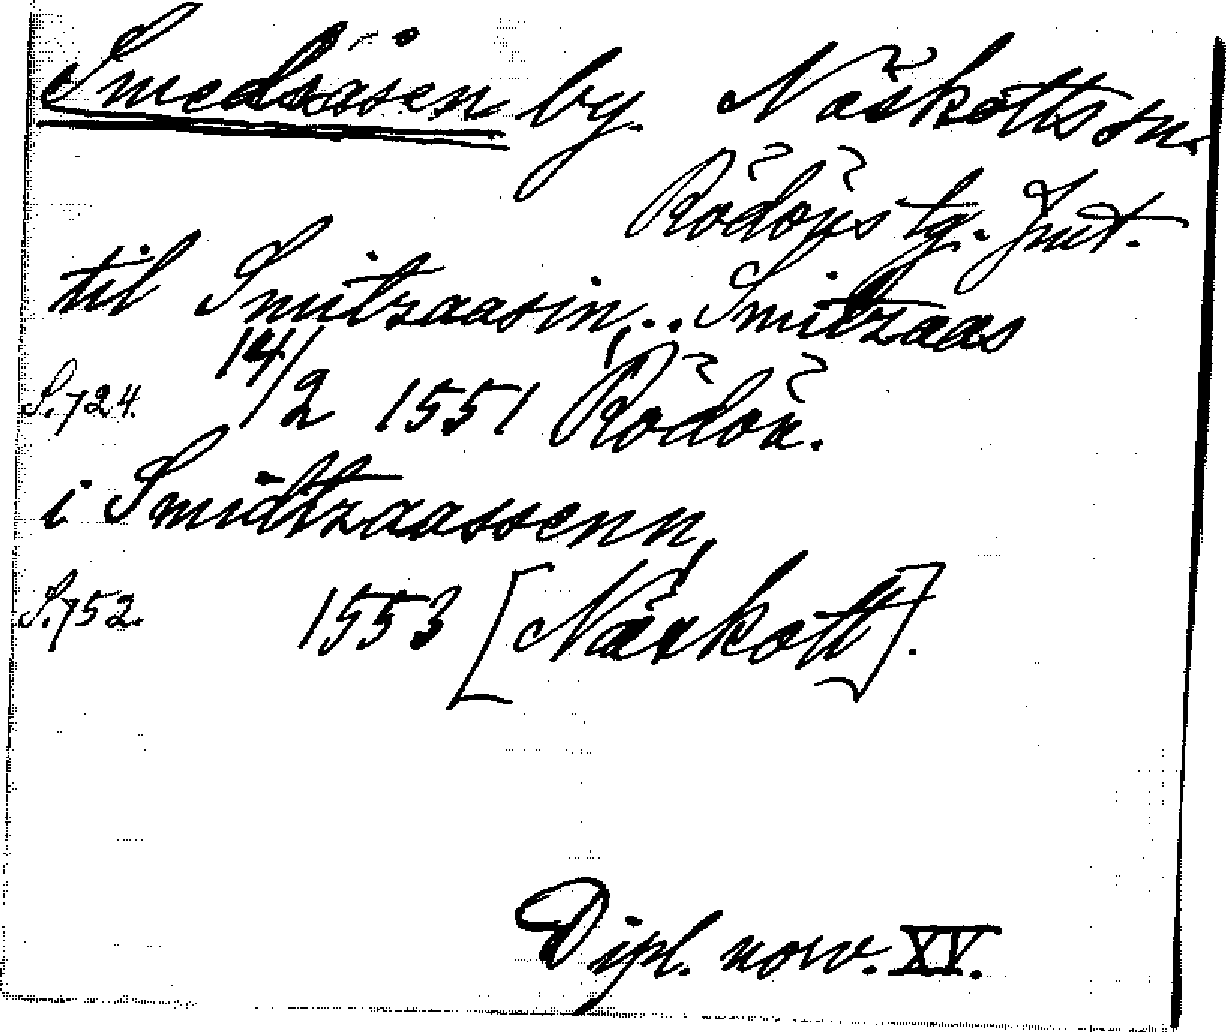 Smedsåsen by. Näskotts sn.
Rödöns tg. Jmt.
til Smitzaasin, .. Smitzaas
S. 724. 14/2 1551 Rödön.
i Smidtzaassenn,
S. 752. 1553 [Näskott].
Dipl. norv. XV.